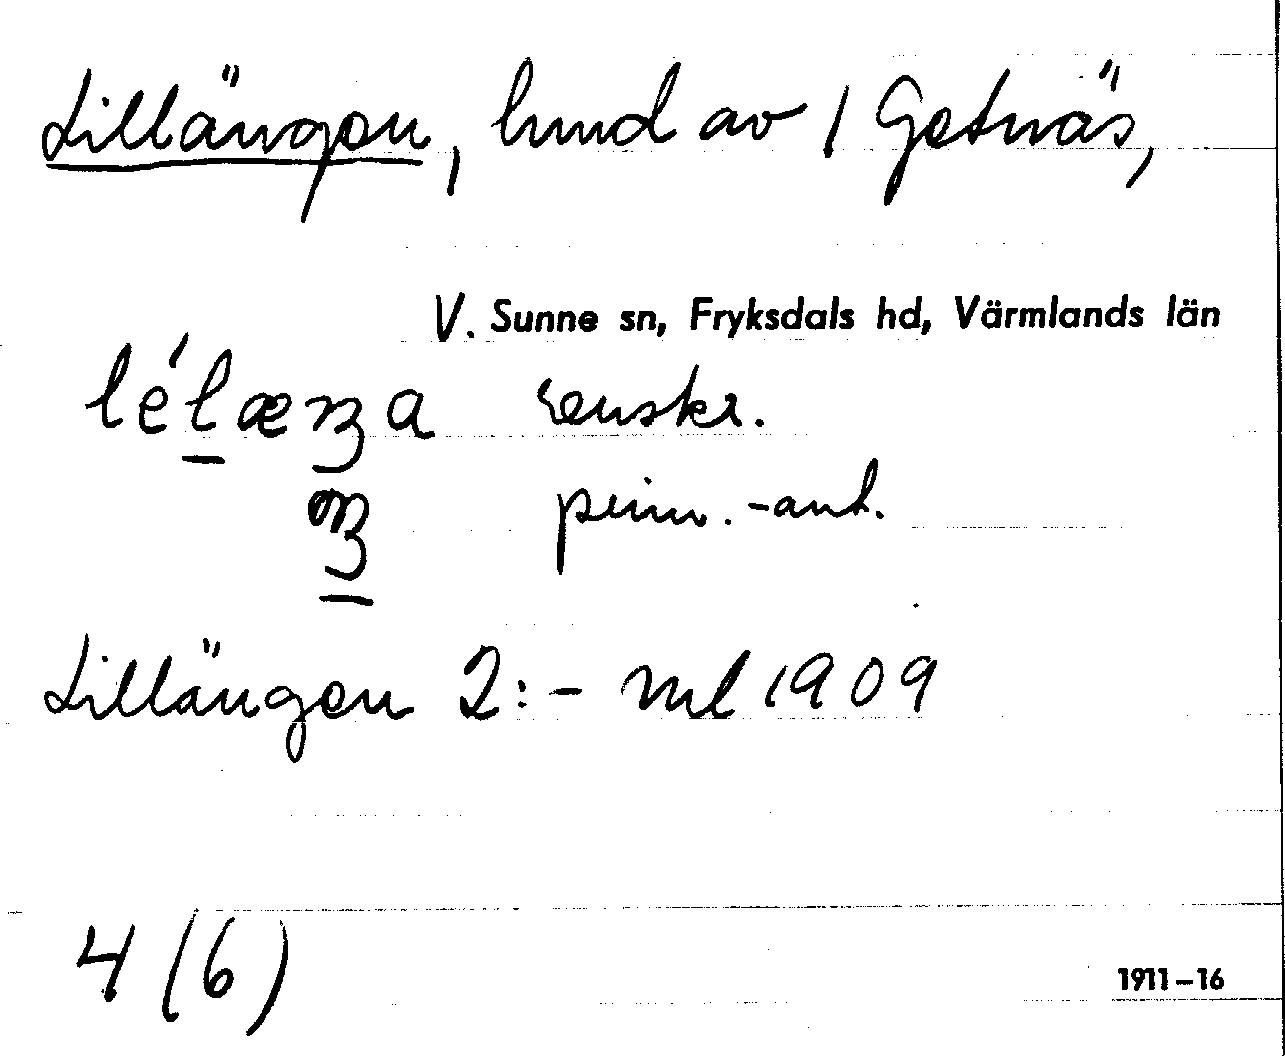 Lillängen, hmd av 1 Getnäs,
V. Sunne sn, Fryksdals hd, Värmlands län
renskr.
prim.-ant.
Lillängen 2:- ml 1909
4 (6)
1911-16